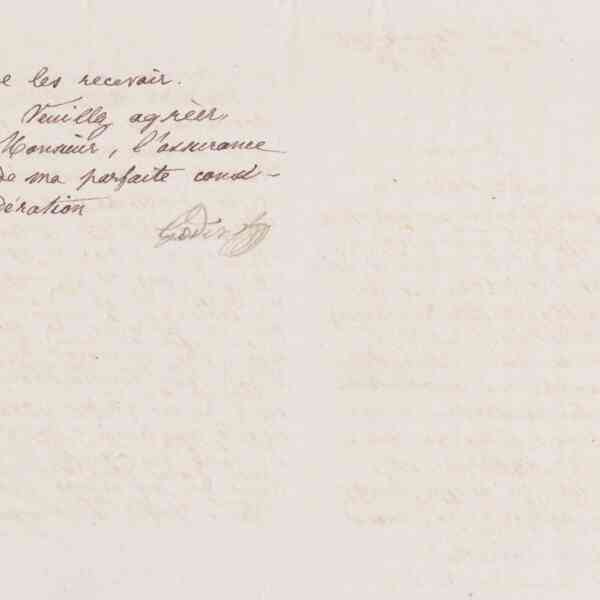 e les recevoir.
Veuillez agréer,
Monsieur, l'assurance
de ma parfaite consi-
dération
Godin